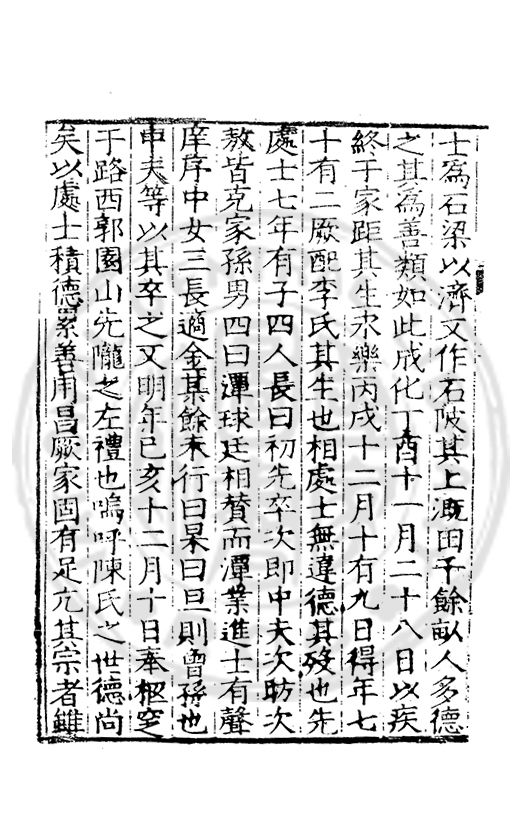 士為石梁以濟又作石陂其上溉田千餘畝人多德
之其為善類如此成化丁酉十一月二十八日以疾
終于家距其生永樂丙戌十二月十有九日得年七
十有二厥配李氏其生也相處士無違德其歿也先
處士七年有子四人長曰初先卒次即中夫次昉次
敖皆克家孫男四曰潭球廷相贊而潭業進士有聲
庠序中女三長適金某餘未行曰杲曰旦則曾孫也
中夫等以其卒之又明年己亥十二月十日奉柩窆
于路西郭園山先隴之左禮也嗚呼陳氏之世德尚
矣以處士積德累善用昌厥家固有足亢其宗者雖